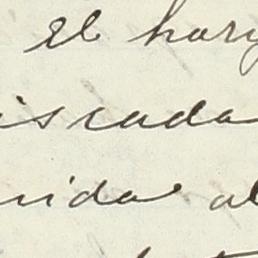 El hary
iscada
nida al